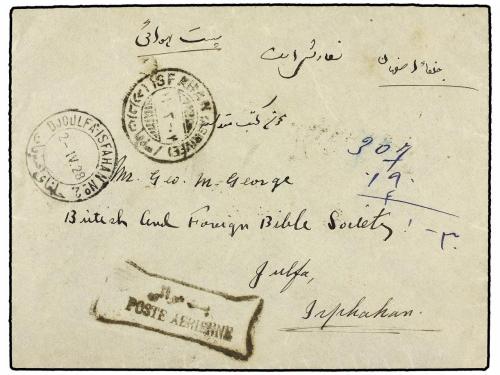 پست هوائی
سفارشی است
جلفا اصفهان
DJOULFA ISFAHAN No. 2
2-IV.28
ISFAHAN (ARRIVÉE)
307
Mr. Geo. M. George
British and Foreign Bible Society
Julfa,
Isphahan.
POSTE AERIENNE